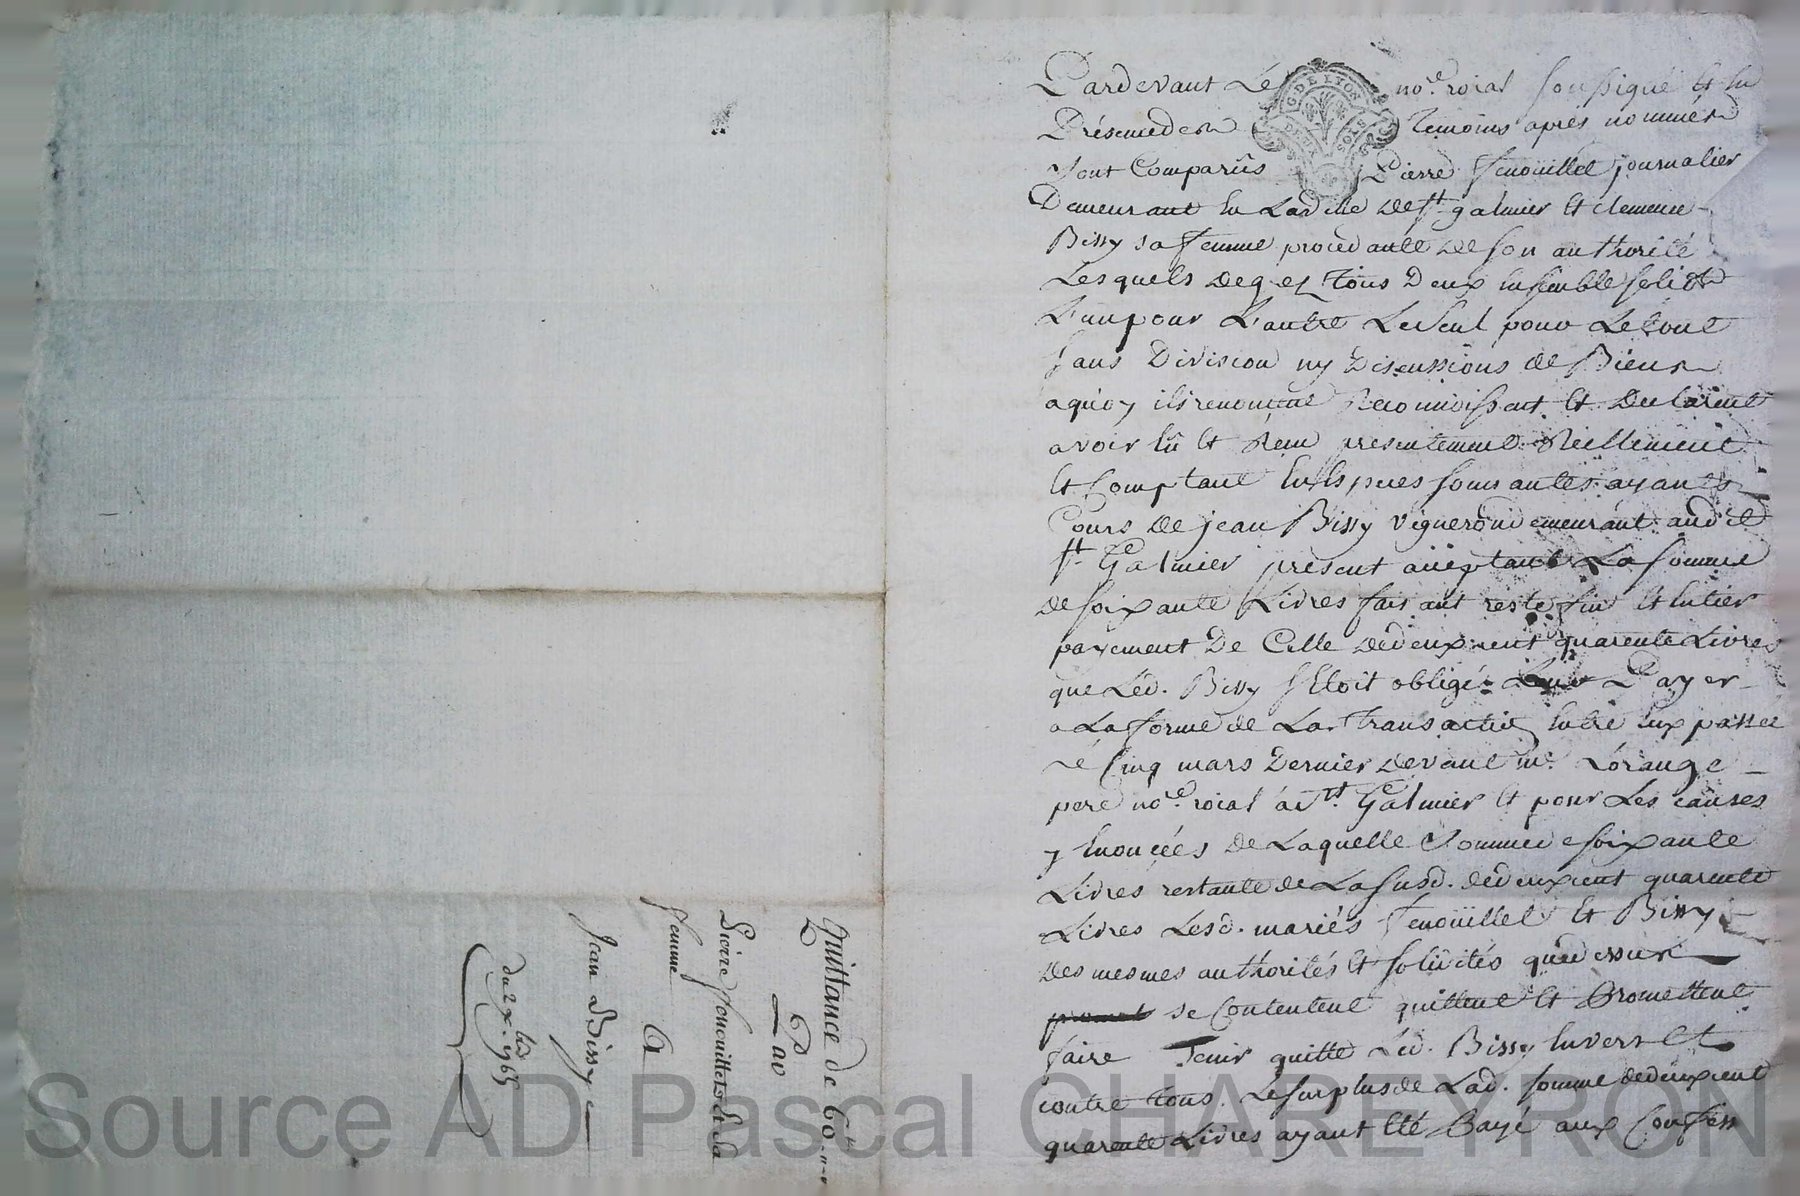 Pardevant Le no.re roial soussigné Et En
Présence des Temoins après nommés
sont Comparûs Pierre fenoüillet journalier
Demeurant En Lad. ville de st. galmier Et clemence
Bissy sa femme procedante de son authorité
Lesquels de gré Tous Deux Ensemble solid.t
L'un pour L'autre Le seul pour Le tout
sans Division ny Discussions de Biens
aquoy ils renoncent Reconnoissent Et Declarent
avoir Eû Et Reçu presentement Réellement
Et Comptant En Especes sonnantes ayant
Cours de jean Bissy vigneron demeurant aud.
st. Galmier present acceptant La somme
de soixante Livres faisant reste fin Et Entier
payement De Celle de deux cent quarente Livres
que Led. Bissy s'Etoit obligé Leur Payer
a La forme de La Transaction Entre Eux passée
Le Cinq mars Dernier devant me. Lorange
pere no.re roial a St. Galmier Et pour Les causes
y Enoncées de Laquelle somme de soixante
Livres restante de La susd. de deux cent quarente
Livres Lesd. mariés fenoüillet Et Bissy
Des mesmes authorités Et solidités que dessus
se Contentent quittent Et Promettent
faire Tenir quitte Led. Bissy Envers Et
contre tous. Le surplus de Lad. somme de deux cent
quarente Livres ayant Eté Payé aux Confess
Quittance de 60.#
Par
Pierre fenouillet Et Sa
femme
A
Jean Bissy
du 2 x.bre 1765
Source AD Pascal CHAREYRON